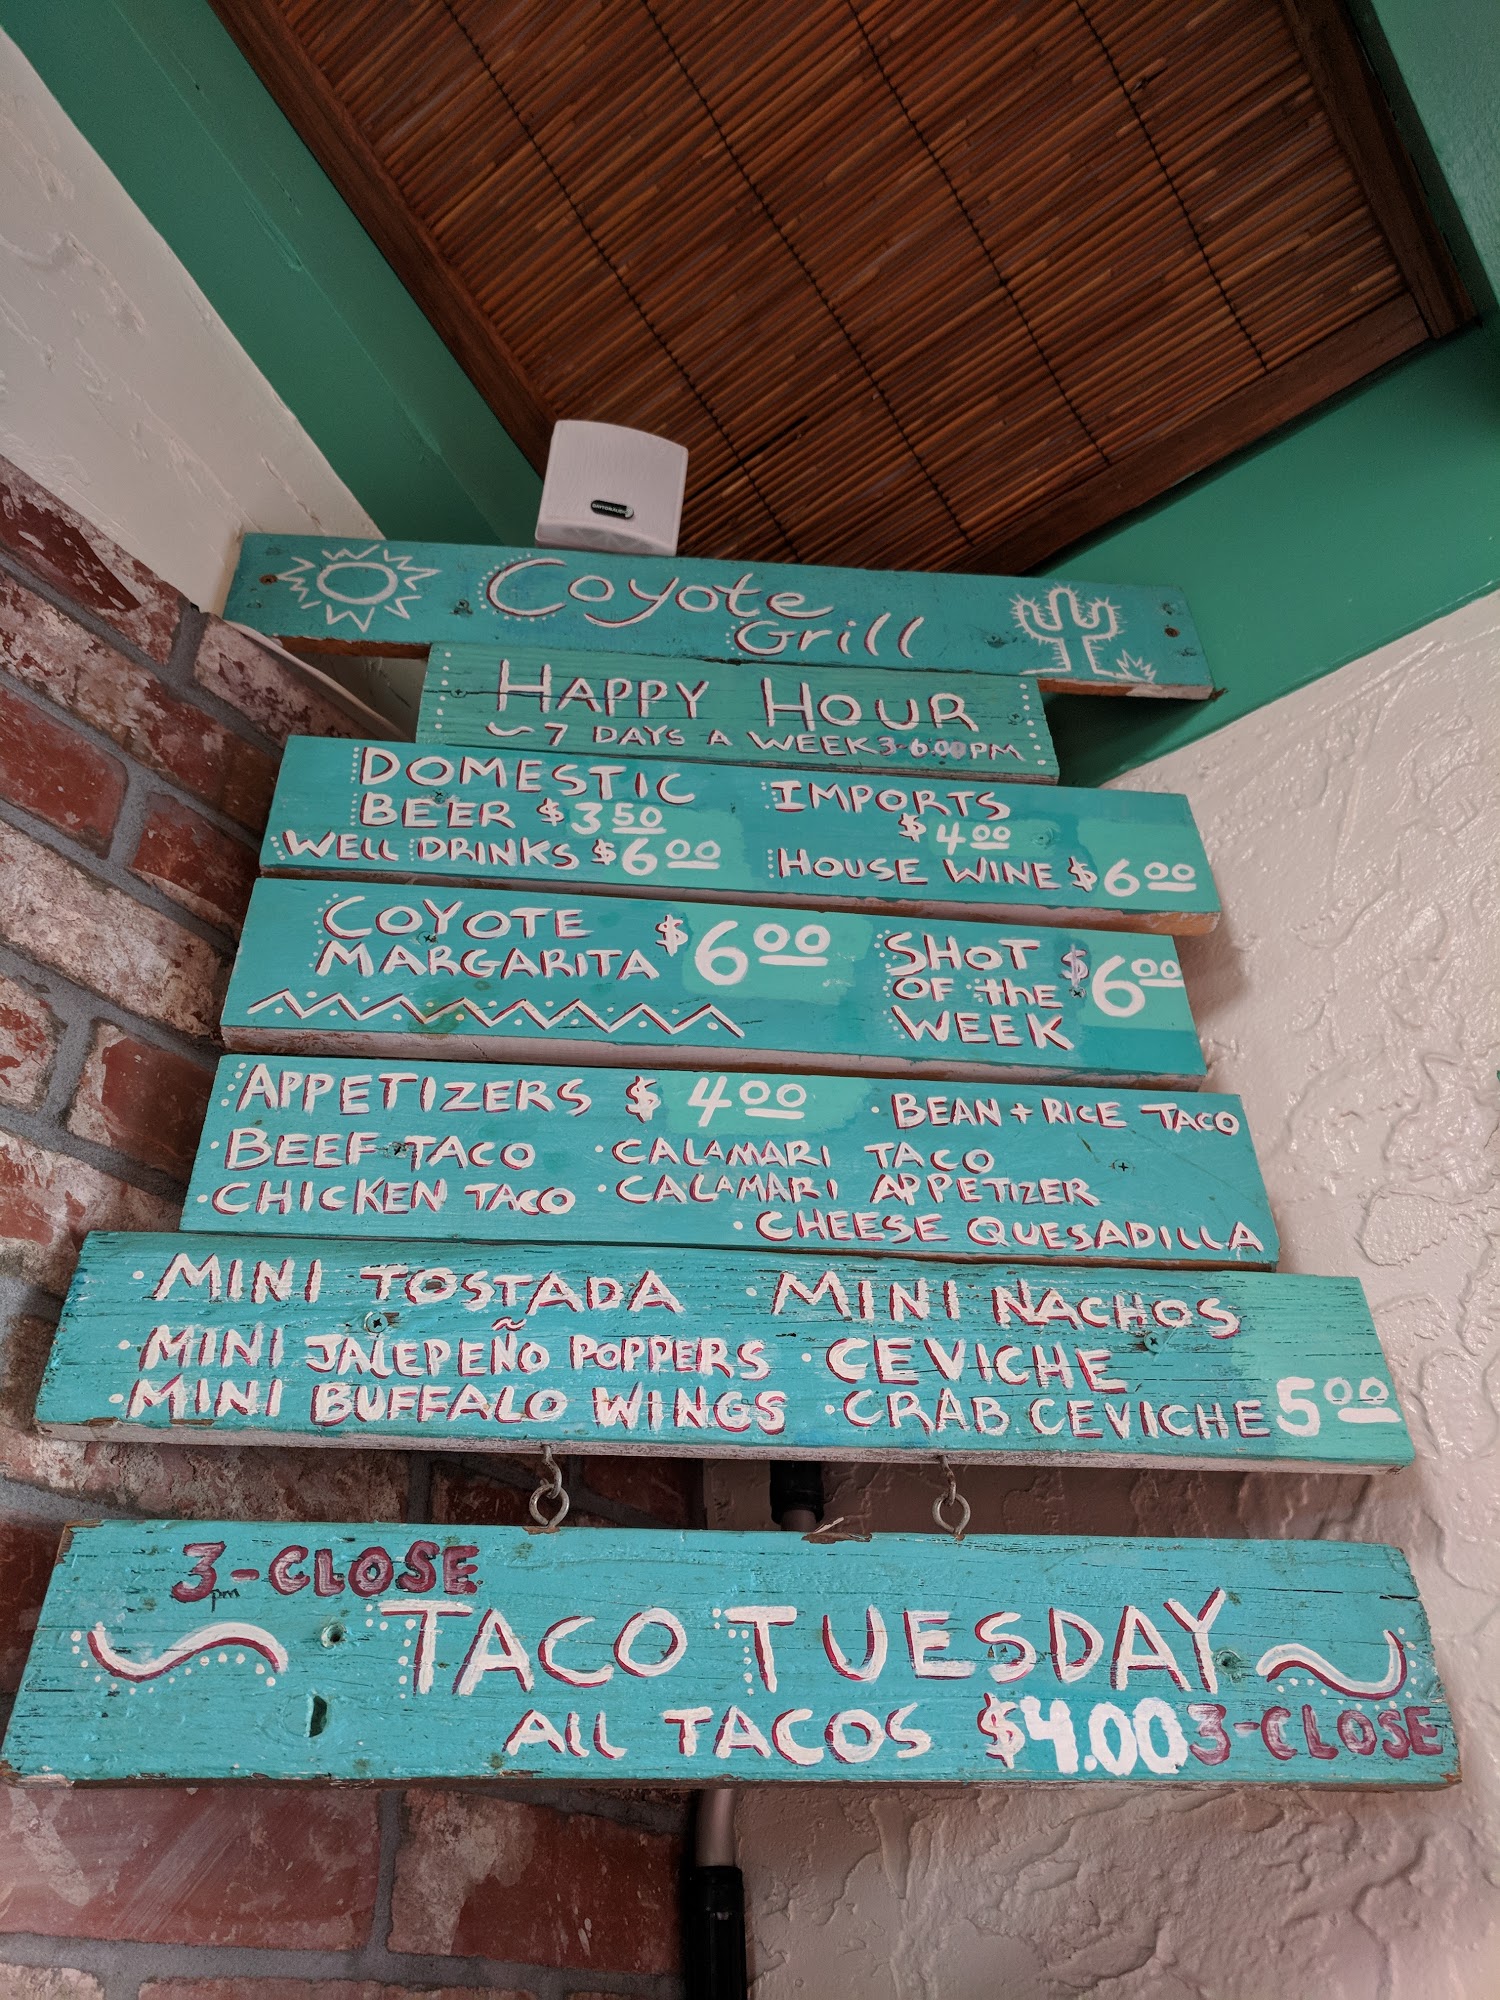 Coyote
Grill
HAPPY HOUR
~ 7 DAYS A WEEK 3-6:00 PM
DOMESTIC
BEER $3.50
WELL DRINKS $6.00
IMPORTS
$4.00
HOUSE WINE $6.00
COYOTE
MARGARITA $6.00
SHOT
OF the
WEEK $6.00
APPETIZERS $4.00
· BEEF TACO
· CHICKEN TACO
· CALAMARI TACO
· CALAMARI APPETIZER
· BEAN + RICE TACO
· CHEESE QUESADILLA
· MINI TOSTADA
· MINI JALEPEÑO POPPERS
· MINI BUFFALO WINGS
· MINI NACHOS
· CEVICHE
· CRAB CEVICHE 5.00
3pm-CLOSE
~ TACO TUESDAY ~
All TACOS $4.00 3-CLOSE